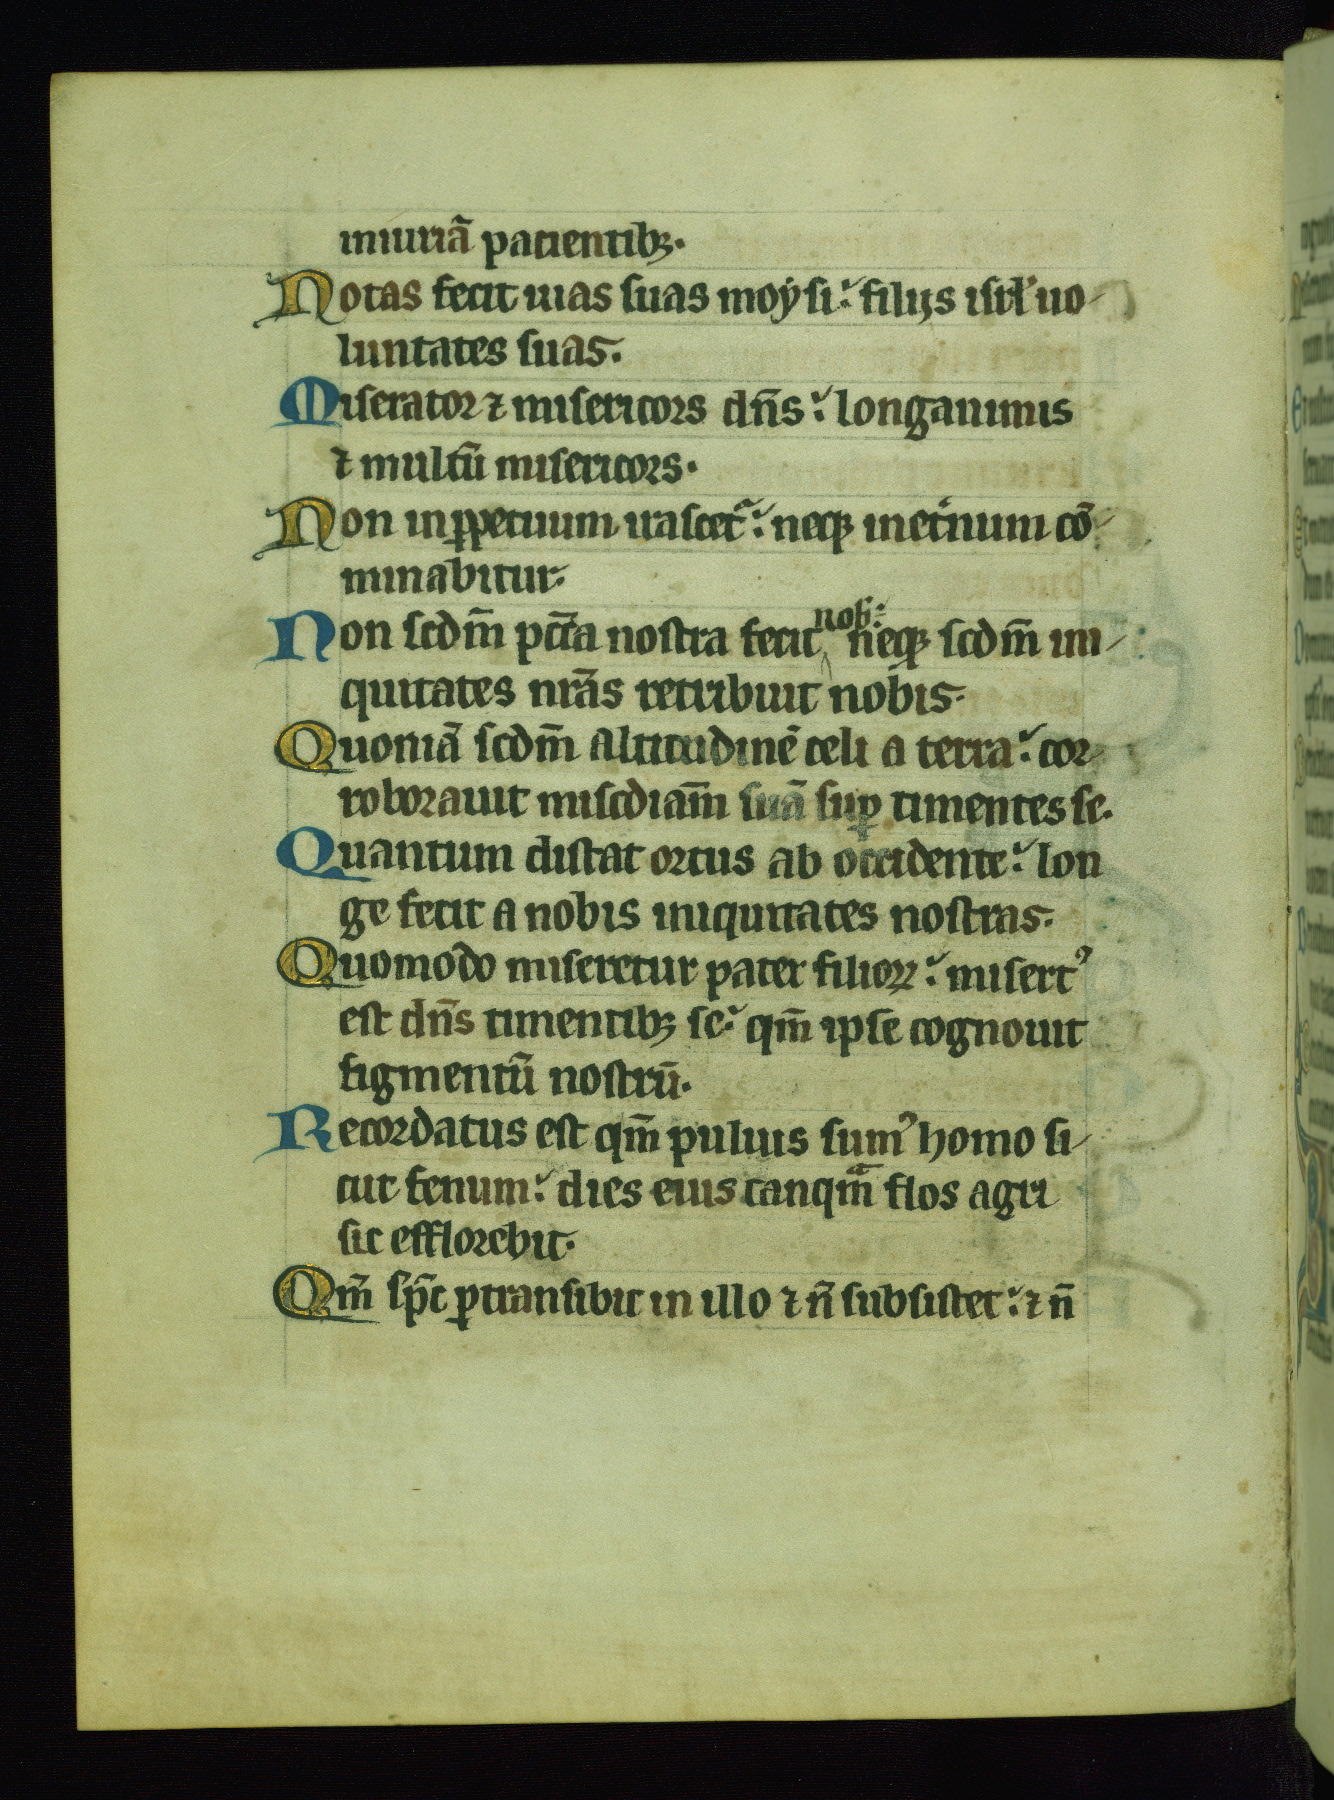 iniuriā pacientibꝫ.
Notas fecit uias suas moẏsi: filijs isrł uo
luntates suas.
Miserator ⁊ misericors dn̄s: longanimis
⁊ multū misericors.
Non in ꝑpetuum irascetᷣ: neqꝫ in et̓num cō
minabitur.
Non scdm̄ pctā nostra fecit nob̄: neqꝫ scdm̄ ini
quitates nrās retribuit nobis.
Quoniā scdm̄ altitudinē celi a terra: cor
roborauit miscdiam̄ suā suꝑ timentes se.
Quantum distat ortus ab occidente: lon
ge fecit a nobis iniquitates nostras.
Quomodo miseretur pater filioꝝ: misertꝰ
est dn̄s timentibꝫ se: qm̄ ipse cognouit
figmentū nostrū.
Recordatus est qm̄ puluis sumꝰ homo si
cut fenum: dies eius tanqm̄ flos agri
sic efflorebit.
Qm̄ sp̄c ꝑtransibit in illo ⁊ n̄ subsistet: ⁊ n̄